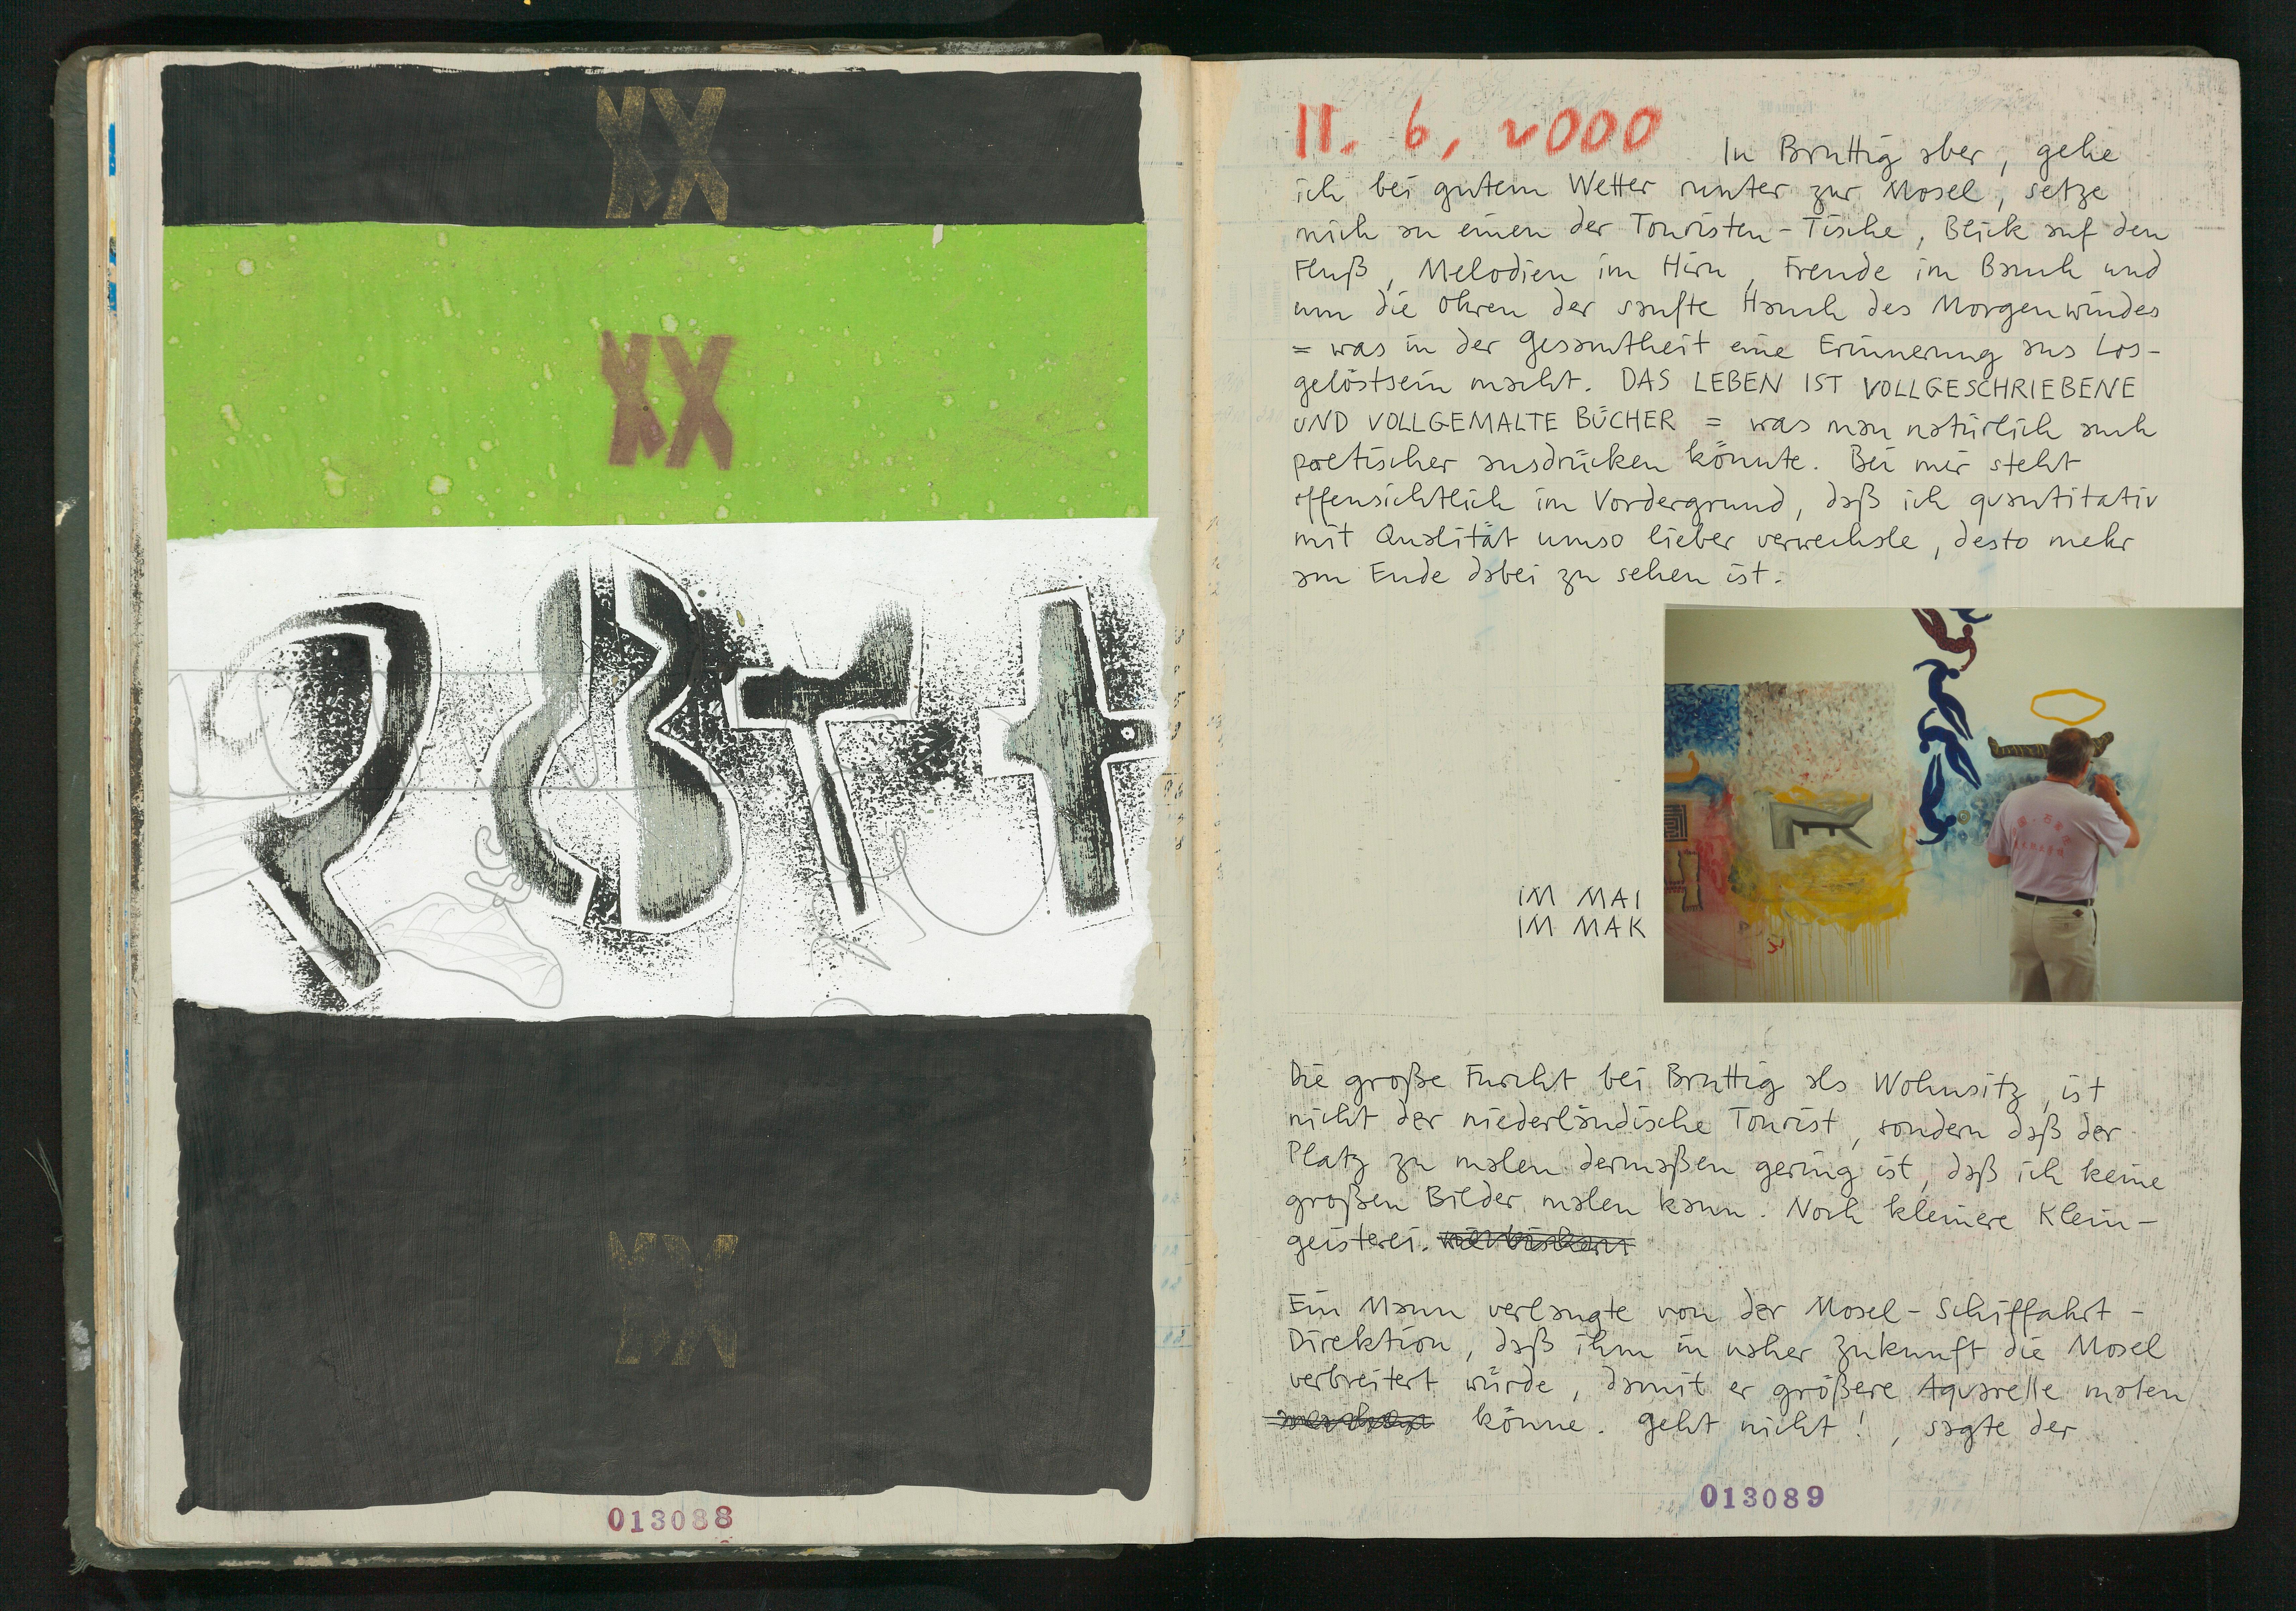 013088
11. 6. 2000
In Bruttig aber, gehe
ich bei gutem Wetter runter zur Mosel, setze
mich an einen der Touristen-Tische, Blick auf den
Fluß, Melodien im Hirn, Freude im Bauch und
um die Ohren der sanfte Hauch des Morgenwindes
= was in der Gesamtheit eine Erinnerung ans Los-
gelöstsein macht. DAS LEBEN IST VOLLGESCHRIEBENE
UND VOLLGEMALTE BÜCHER = was man natürlich auch
poetischer ausdrücken könnte. Bei mir steht
offensichtlich im Vordergrund, daß ich quantitativ
mit Qualität umso lieber verwechsle, desto mehr
am Ende dabei zu sehen ist.
IM MAI
IM MAK
Die große Furcht bei Bruttig als Wohnsitz, ist
nicht der niederländische Tourist, sondern daß der
Platz zu malen dermaßen gering ist, daß ich keine
großen Bilder malen kann. Noch kleinere Klein-
geisterei.
Ein Mann verlangte von der Mosel-Schiffahrt-
Direktion, daß ihm in naher Zukunft die Mosel
verbreitert würde, damit er größere Aquarelle malen
könne. Geht nicht!, sagte der
013089